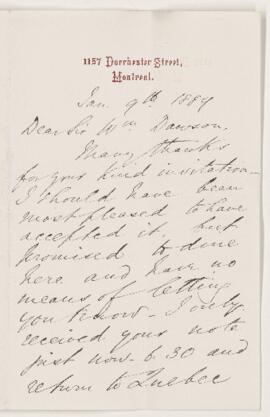 1157 Dorchester Street,
Montreal.
Jan. 9th 1889
Dear Sir Wm Dawson,
Many thanks
for your kind invitation—
I should have been
most pleased to have
accepted it, but
promised to dine
here and have no
means of letting
you know – I only
received your note
just now 6.30 and
return to Quebec